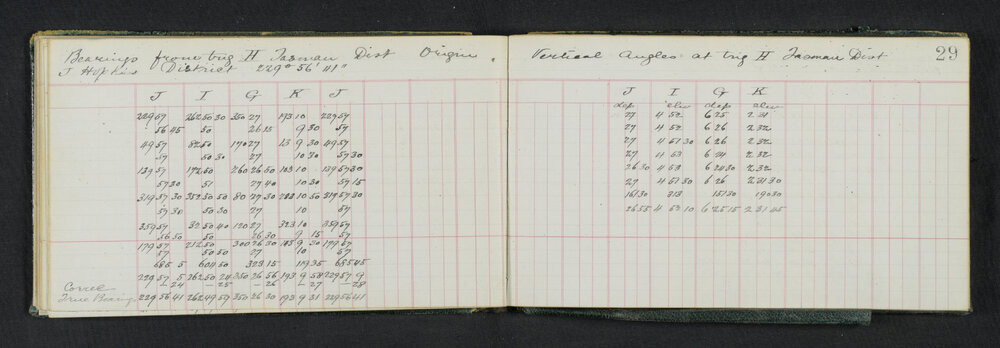 Bearings from trig H Tasman Dist Origin
J Hopkins District 229° 56' 41"
J I G K J
229 57 262 50 30 350 27 193 10 229 57
56 45 50 26 15 9 30 57
49 57 82 50 170 27 13 9 30 49 57
57 50 30 27 10 30 57 30
139 57 172 50 260 26 50 103 10 139 57 30
57 30 51 27 40 10 30 57 15
319 57 30 352 50 50 80 27 30 283 10 50 319 57 30
57 30 50 30 27 10 57
359 57 32 50 40 120 27 323 10 359 57
56 50 50 26 30 9 15 57
179 57 212 50 300 26 30 9 30 179 57
57 50 50 27 10 57
685 5 604 50 323 15 119 35 685 45
229 57 5 262 50 24 350 26 56 193 9 58 229 57 9
-24 -25 -26 -27 -28
Correc
True Bearing 229 56 41 262 49 59 350 26 30 193 9 31 229 56 41
Vertical Angles at trig H Tasman Dist
29
J I G K
dep elev dep elev
27 4 52 6 25 2 31
27 4 52 6 26 2 32
27 4 51 30 6 26 2 32
27 4 53 6 24 2 32
26 30 4 53 6 24 30 2 32
27 4 51 30 6 26 2 31 30
151 30 313 151 30 190 30
26 55 4 53 10 6 25 15 2 31 45